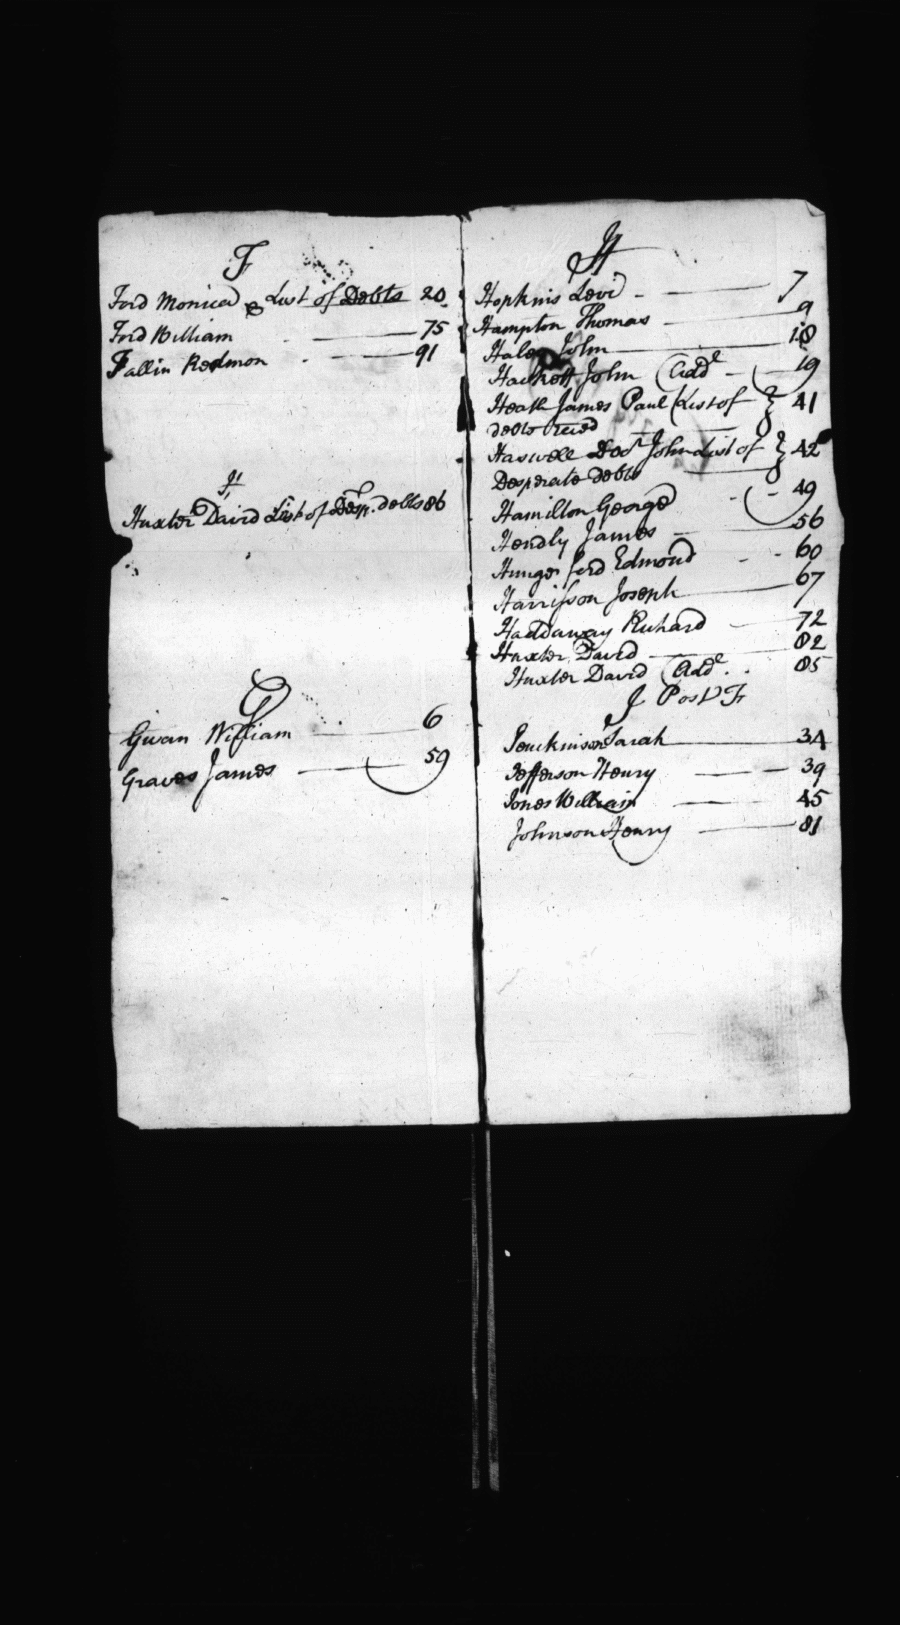 F
Ford Monica & List of Debts 20
Ford William 75
Fallin Redmon 91
H
Huxter David List of Desp. debts 86
G
Giwan William 6
Graves James 59
H
Hopkins Levi 7
Hampton Thomas 9
Hales John 18
Hackett John (add 19
Heath James Paul (List of } 41
debts reced
Haswell Docr John List of } 42
Desperate debts
Hamilton George 49
Hendly James 56
Hungerford Edmond 60
Harrisson Joseph 67
Haddaway Richard 72
Huxter David 82
Huxter David (add 85
J Post F
Jenckinson Sarah 34
Jefferson Henry 39
Jones William 45
Johnson Henry 81